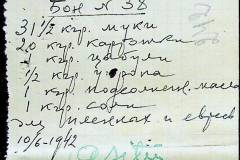 Бон N 38
31 1/2 кгр. муки
20 кгр. картошки
1 кгр. цибули
1/2 кгр.
1 кгр. подсолнеч. масла
1 кгр. соли
для пленных и евреев
10/6-1942